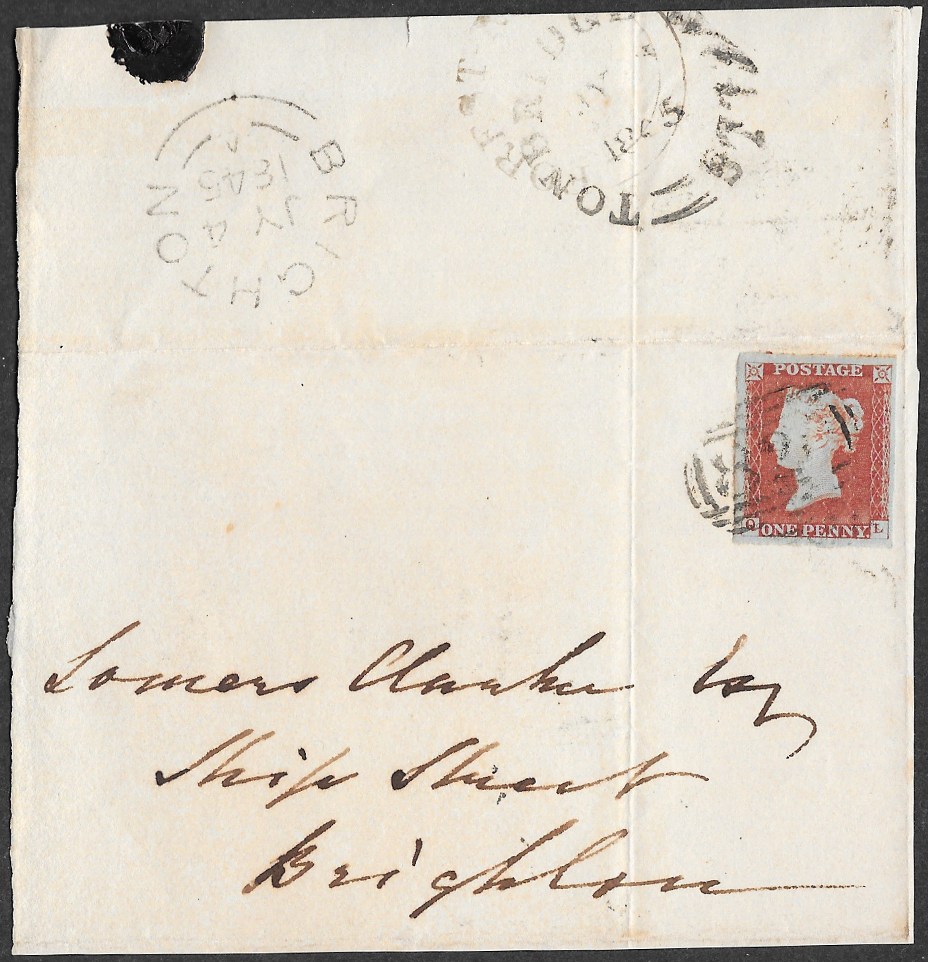 BRIGHTON
JY 4
1845
TONBRIDGE WELLS
JY
1845
POSTAGE
Q L
ONE PENNY.
Somers Clarke Esq
Ship Street
Brighton